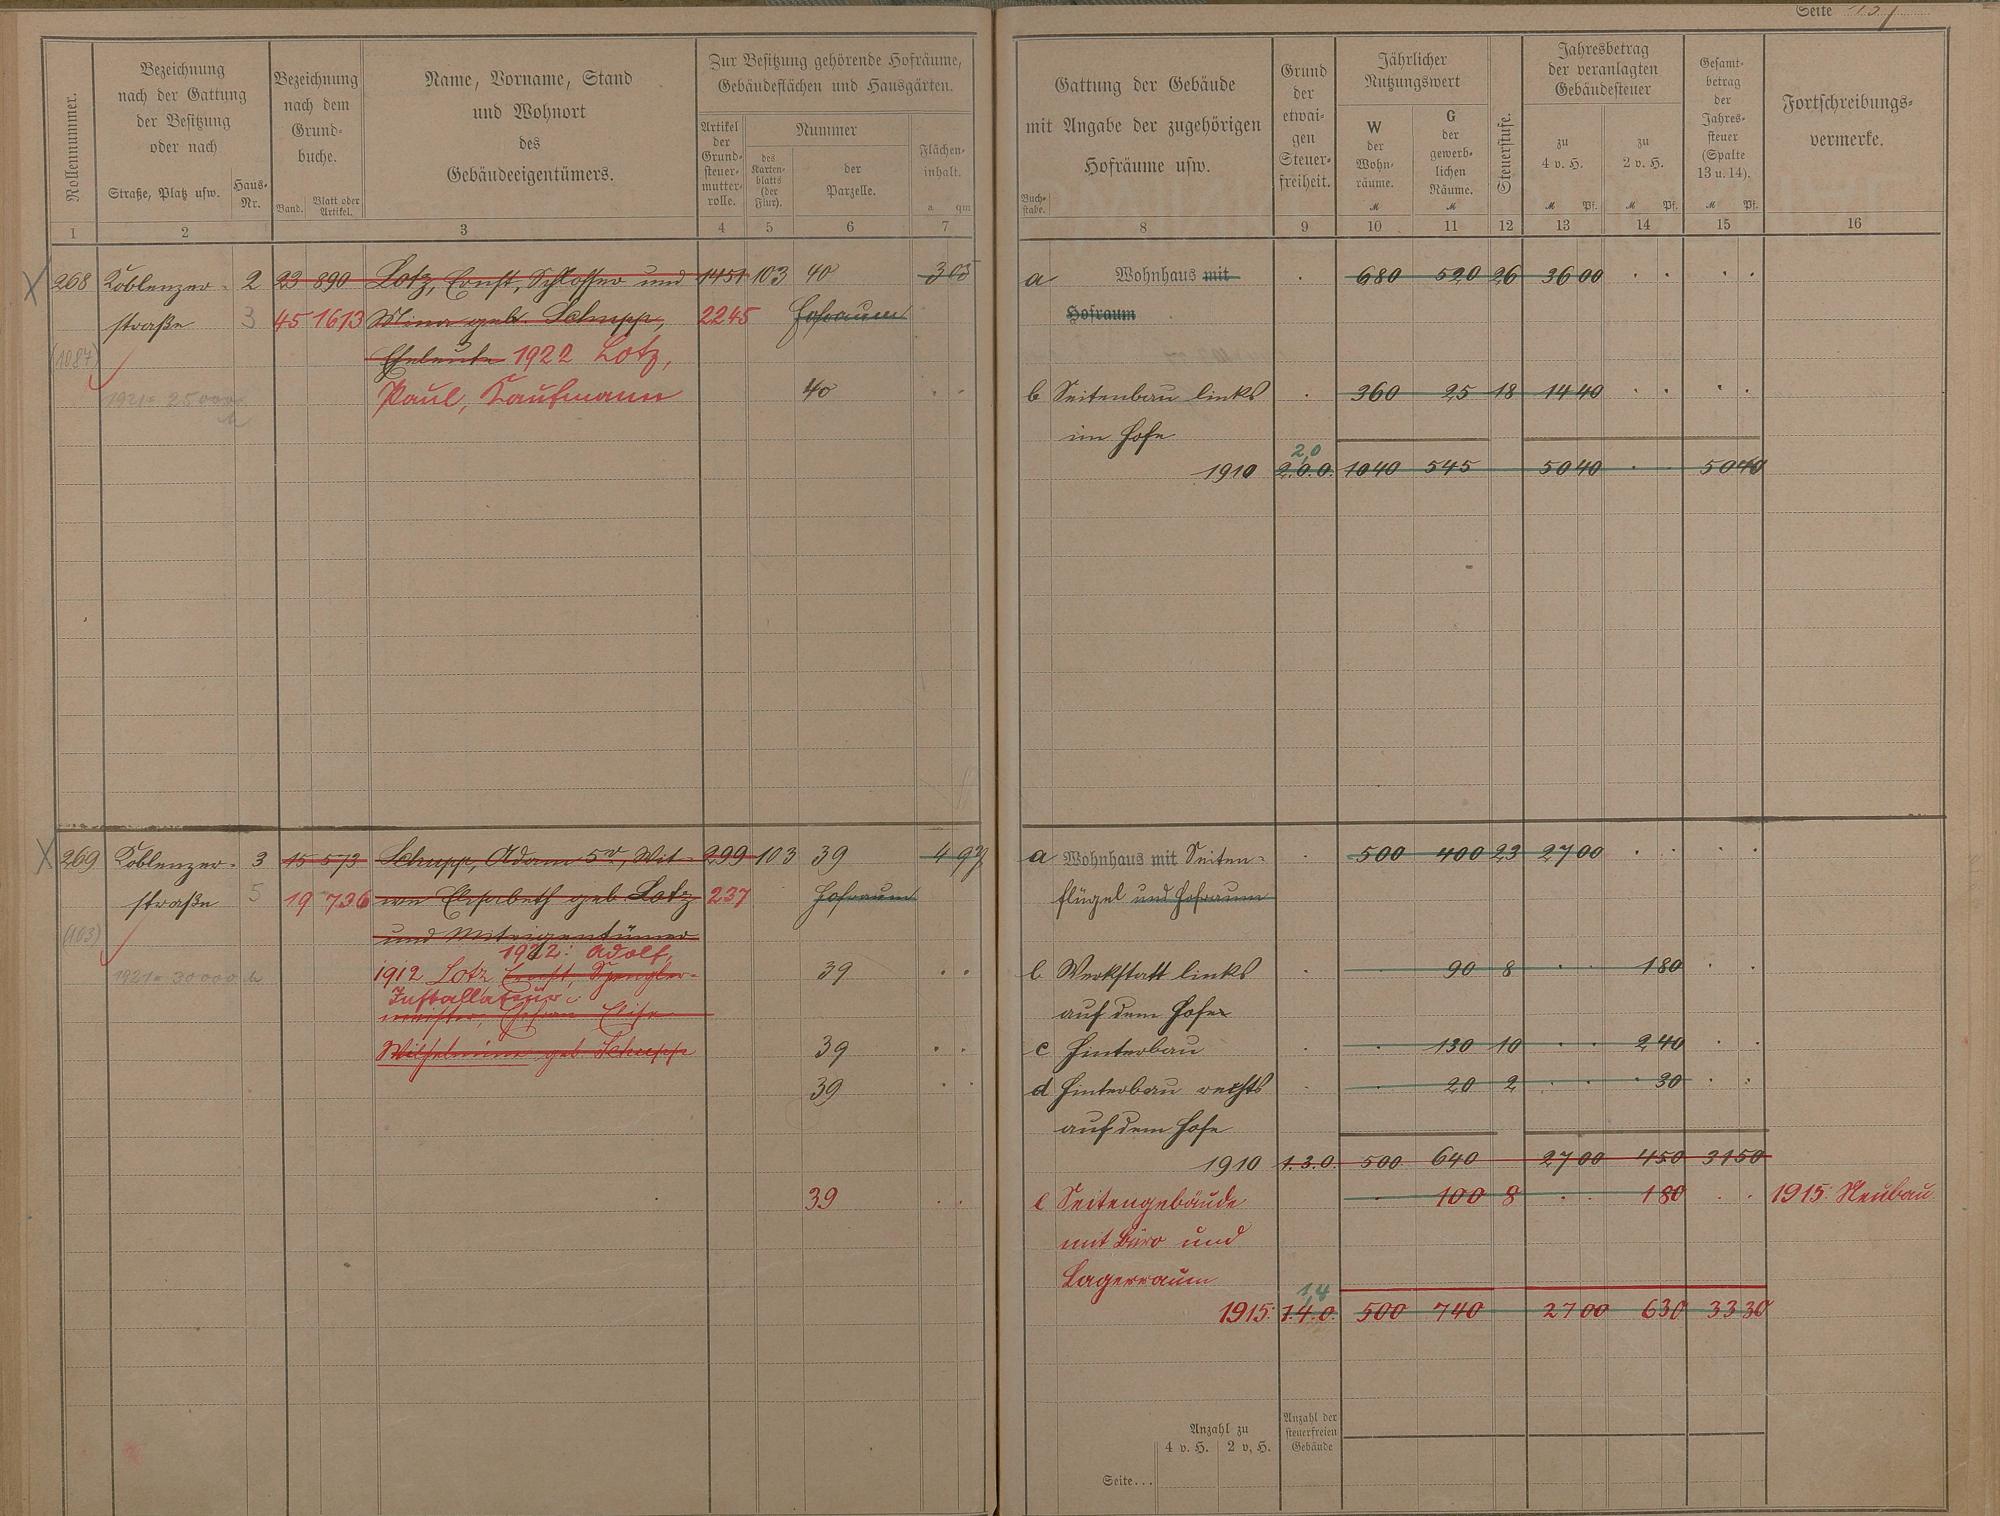 Seite 137
Rollennummer.
Bezeichnung
nach der Gattung
der Besitzung
oder nach
Straße, Platz usw.
Haus-
Nr.
Bezeichnung
nach dem
Grund-
buche.
Band.
Blatt oder
Artikel.
Name, Vorname, Stand
und Wohnort
des
Gebäudeeigentümers.
Zur Besitzung gehörende Hofräume,
Gebäudeflächen und Hausgärten.
Artikel
der
Grund-
steuer-
mutter-
rolle.
Nummer
des
Karten-
blatts
(der
Flur).
der
Parzelle.
Flächen-
inhalt.
a qm
1 2 3 4 5 6 7
268 Koblenzer- 2 23 890 Lotz, Ernst, Schlosser und 1451 103 40 3 03
straße 3 45 1613 Mina geb. Schupp, 2245 Hofraum
(1087) Eheleute 1922 Lotz,
1921 = 25000 Paul, Kaufmann 40 . .
269 Koblenzer- 3 15 573 Schupp, Adam 5r, Wit- 299 103 39 4 97
straße 5 19 736 we Elisabeth geb. Lotz 237 Hofraum
(103) und Miteigentümer
1922: Adolf,
1921 = 30000 1912 Lotz Ernst, Spengler- 39 . .
Installateur
meister, Ehefrau Elise
Wilhelmine geb. Schupp 39 . .
39 . .
39 . .
Buch-
stabe.
Gattung der Gebäude
mit Angabe der zugehörigen
Hofräume usw.
Grund
der
etwai-
gen
Steuer-
freiheit.
Jährlicher
Nutzungswert
W
der
Wohn-
räume.
M
G
der
gewerb-
lichen
Räume.
M
Steuerstufe.
Jahresbetrag
der veranlagten
Gebäudesteuer
zu
4 v. H.
M Pf.
zu
2 v. H.
M Pf.
Gesamt-
betrag
der
Jahres-
steuer
(Spalte
13 u. 14).
M Pf.
Fortschreibungs-
vermerke.
8 9 10 11 12 13 14 15 16
a Wohnhaus mit . 680 520 26 36 00 . . . .
Hofraum
b Seitenbau links . 360 25 18 14 40 . . . .
im Hofe
2,0
1910 2.0.0. 1040 545 50 40 . 50 40
a Wohnhaus mit Seiten- . 500 400 23 27 00 . . . .
flügel und Hofraum
b Werkstatt links . . 90 8 . . 1 80 . .
auf dem Hofe
c Hinterbau . . 130 10 . . 2 40 . .
d Hinterbau rechts . . 20 2 . . . 30 . .
auf dem Hofe
1910 1.3.0. 500 640 27 00 4 50 31 50
e Seitengebäude . 100 8 . . 1 80 . . 1915: Neubau
mit Büro und
Lagerraum
1,4
1915: 1.4.0. 500 740 27 00 6 30 33 30
Anzahl zu
4 v. H. 2 v. H.
Anzahl der
steuerfreien
Gebäude
Seite...